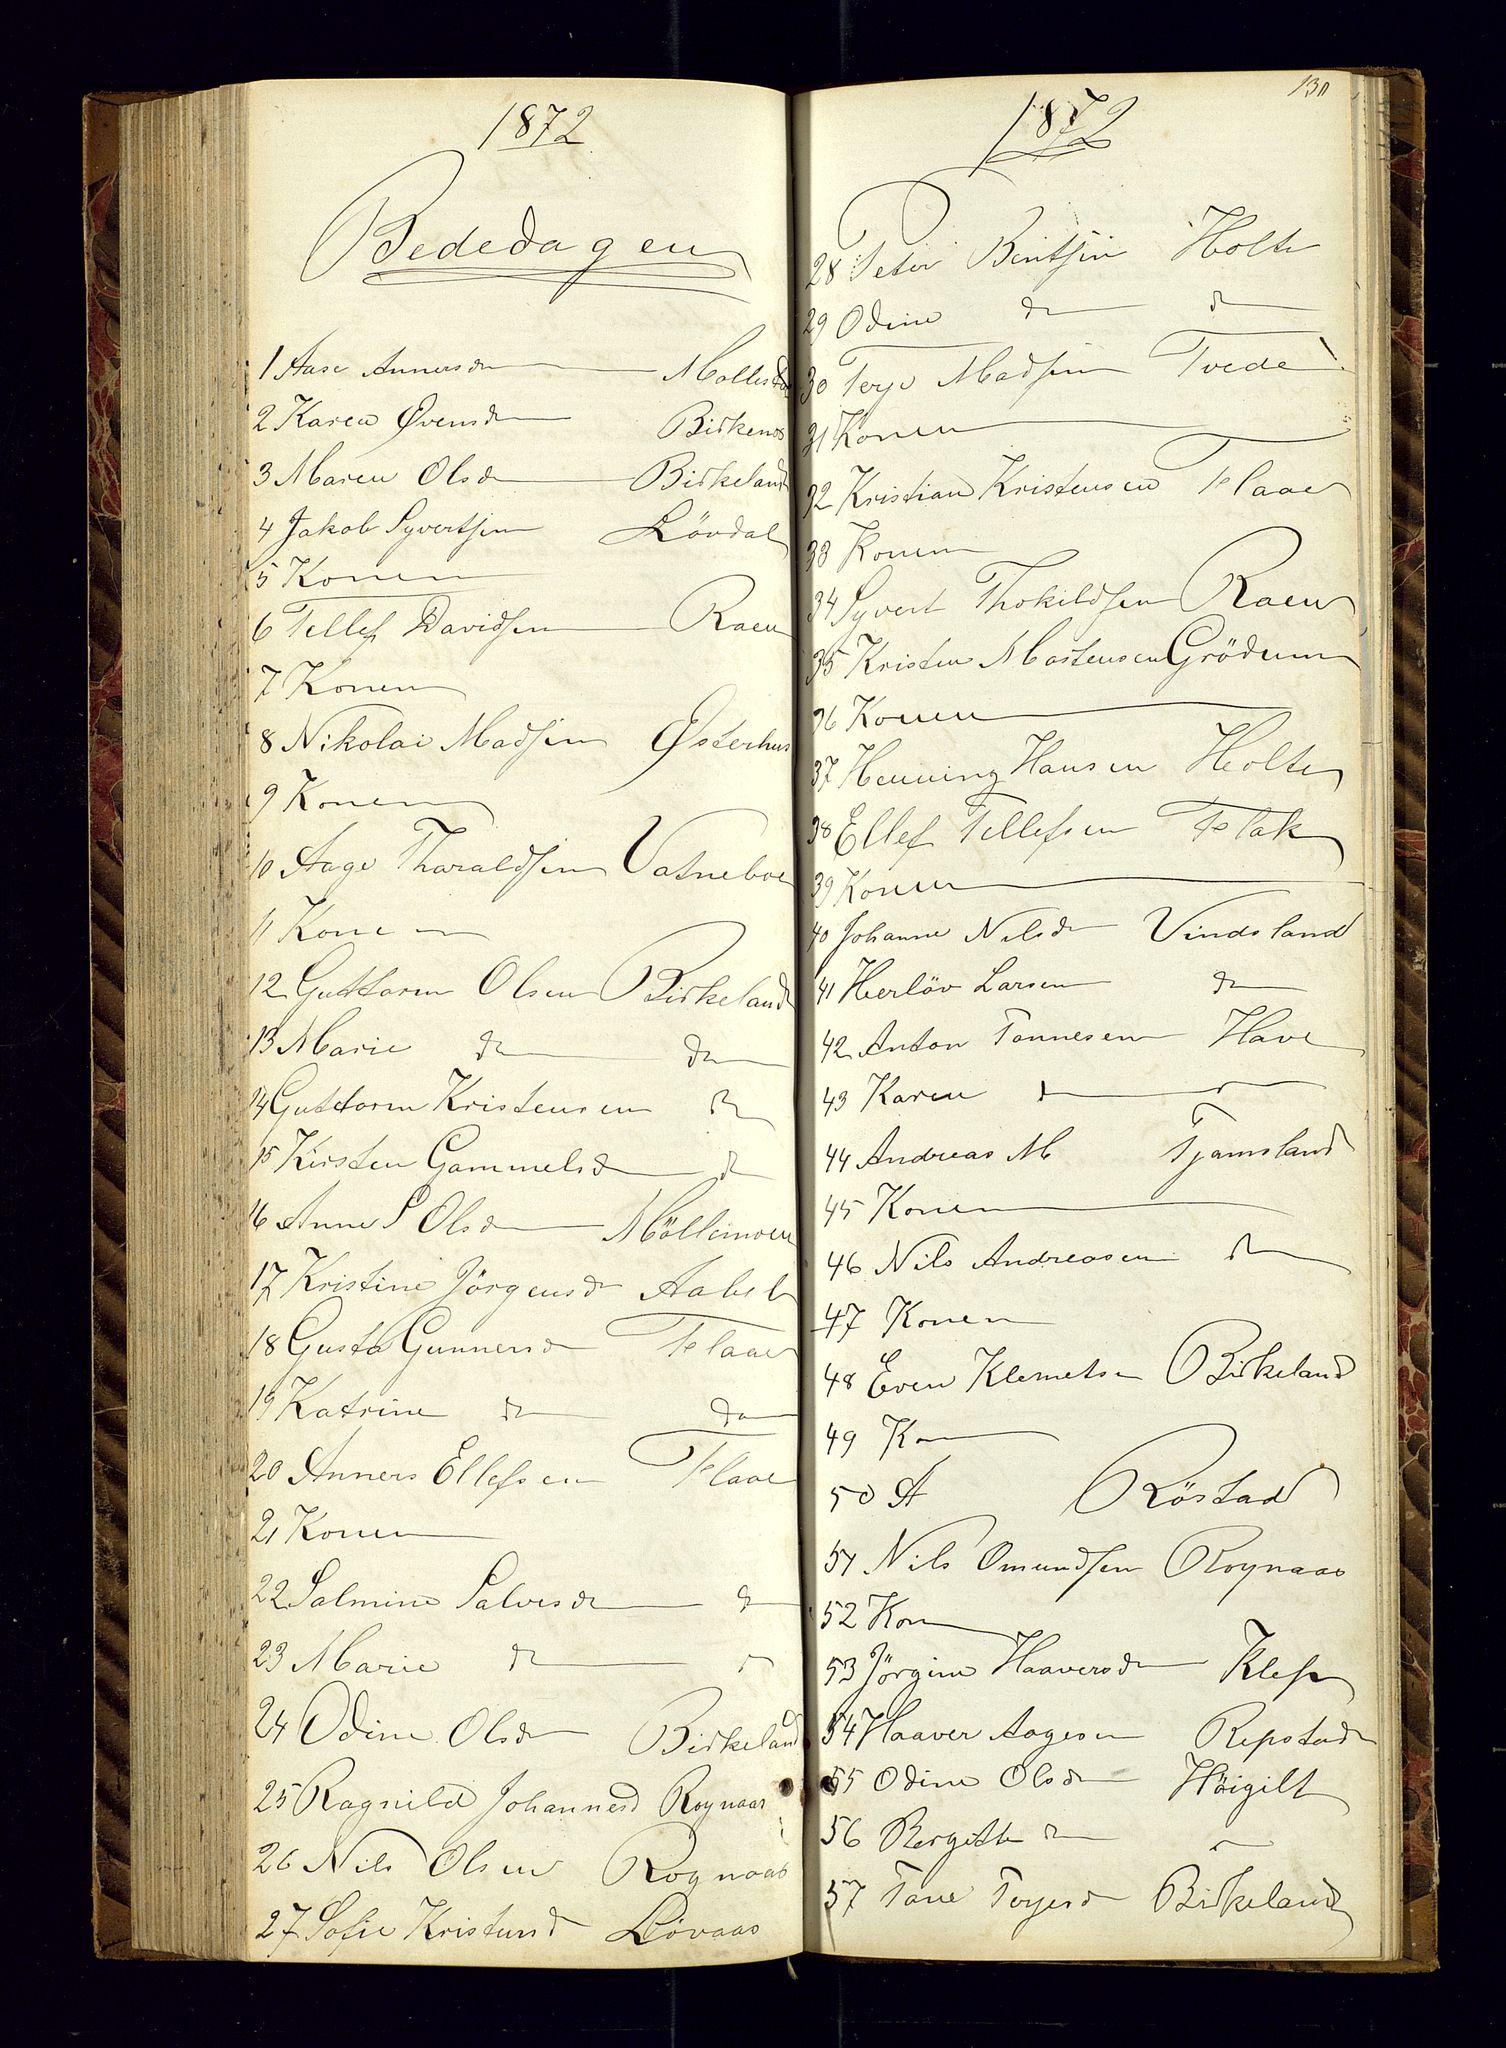 1872
Bededagen
1 Aase Annersd Mollest
2 Karen Øvensd Birkenes
3 Maren Olsd Birkeland
4 Jakob Syvertsen Lövdal
5 Konen
6 Tellef Davidsen Raen
7 Konen
8 Nikolai Madsen Østerhus
9 Konen
10 Aage Tharaldsen Vatneboe
11 Konen
12 Guttorm Olsen Birkeland
13 Marie do do
14 Guttorm Kristensen do
15 Kirsten Gammelsd do
16 Anne S Olsd Möllemoen
17 Kristine Jörgensd Aabel
18 Gusta Gunnersd Flaae
19 Katrine do do
20 Anners Ellefsen Flaae
21 Konen
22 Salmine Salvesd do
23 Marie do do
24 Odine Olsd Birkeland
25 Ragnild Johannesd Roynaas
26 Nils Olsen Roynaas
27 Sofie Kristensd Lövaas
130
1872
28 Peter Bentsen Holte
29 Odine do do
30 Terje Madsen Tvede
31 Konen
32 Kristian Kristensen Flaae
33 Konen
34 Syvert Thokildsen Raen
35 Kristen Mortensen Grödum
36 Konen
37 Henning Hansen Holte
38 Ellef Tellefsen Flak
39 Konen
40 Johanne Nilsd Vindsland
41 Herlöv Larsen do
42 Anton Tonnesen Have
43 Karen do do
44 Andreas M Tjamsland
45 Konen
46 Nils Andreasen do
47 Konen
48 Even Klemetsen Birkeland
49 Kon
50 A Röstad
51 Nils Omundsen Roynaas
52 Kon
53 Jörgine Haaversd Klef
54 Haaver Aagesen Repstad
55 Odine Olsd Höigilt
56 Bergitte do
57 Tone Terjesd Birkeland